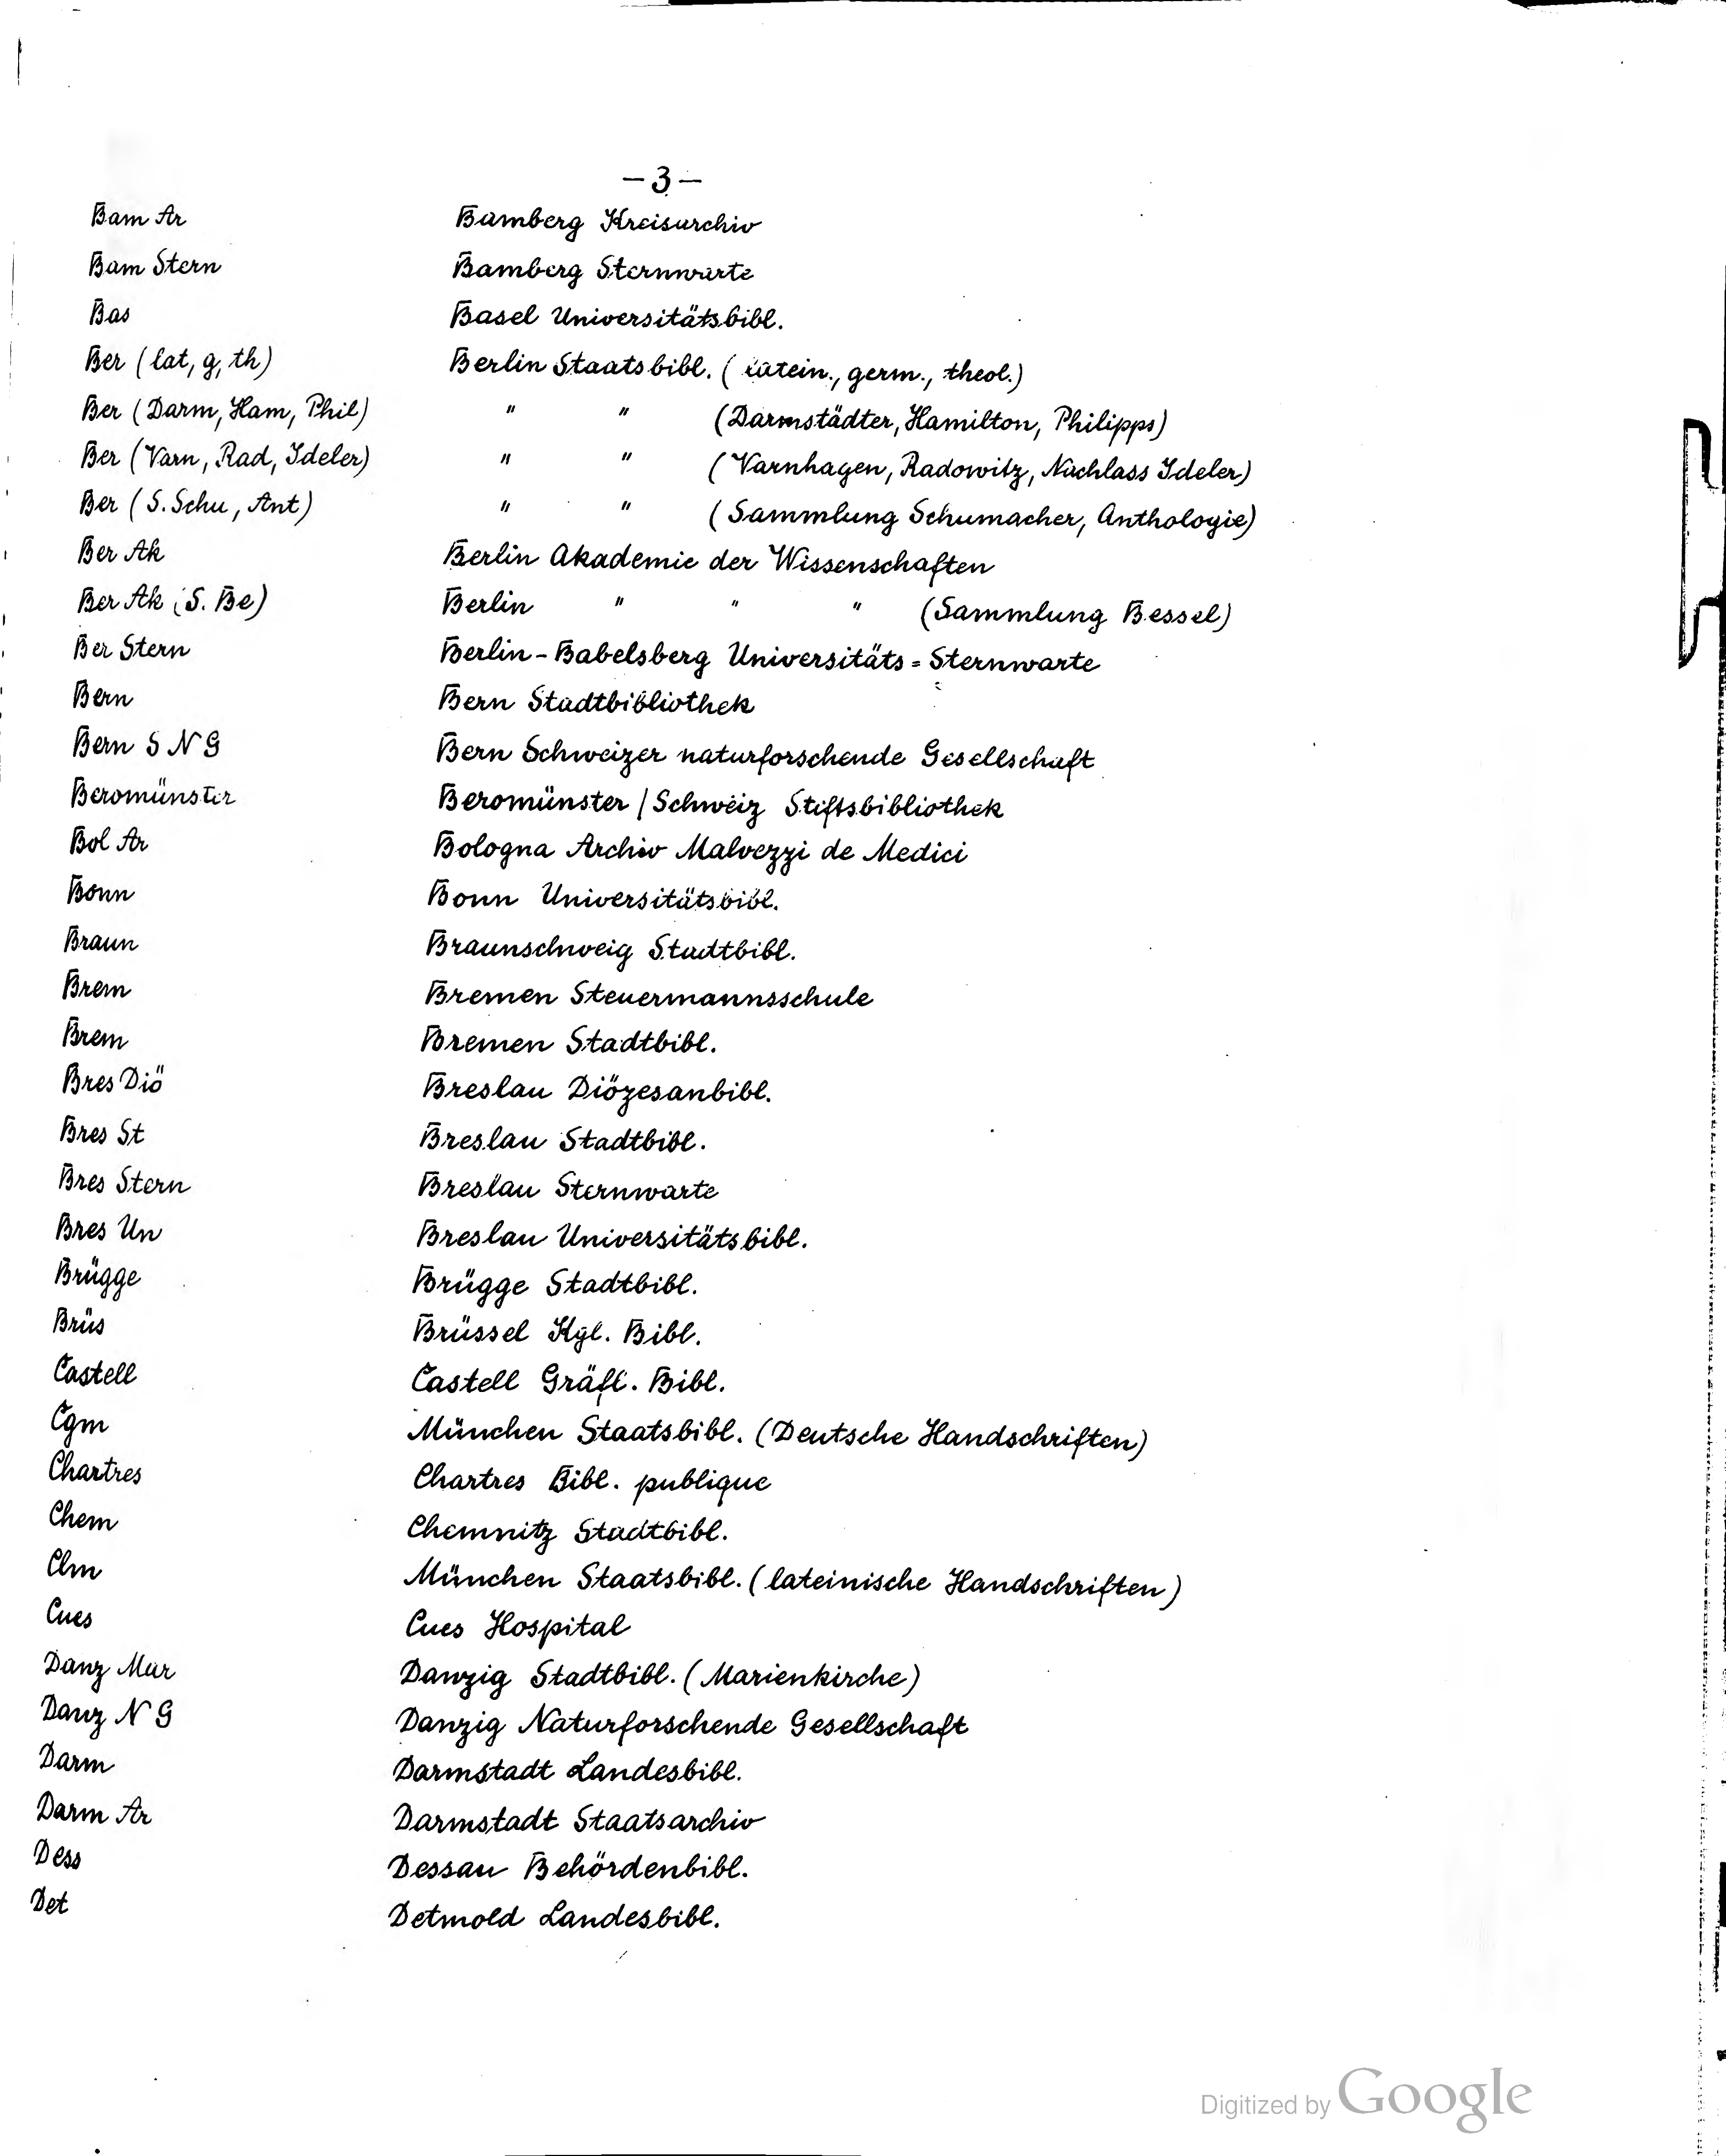 —3—
Bam Ar Bamberg Kreisarchiv
Bam Stern Bamberg Sternwarte
Bas Basel Universitätsbibl.
Ber (lat, g, th) Berlin Staatsbibl. (latein., germ., theol.)
Ber (Darm, Ham, Phil) " " (Darmstädter, Hamilton, Philipps)
Ber (Varn, Rad, Ideler) " " (Varnhagen, Radowitz, Nachlass Ideler)
Ber (S. Schu, Ant) " " (Sammlung Schumacher, Anthologie)
Ber Ak Berlin Akademie der Wissenschaften
Ber Ak (S. Be) Berlin " " " (Sammlung Bessel)
Ber Stern Berlin-Babelsberg Universitäts=Sternwarte
Bern Bern Stadtbibliothek
Bern S N G Bern Schweizer naturforschende Gesellschaft
Beromünster Beromünster/Schweiz Stiftsbibliothek
Bol Ar Bologna Archiv Malvezzi de Medici
Bonn Bonn Universitätsbibl.
Braun Braunschweig Stadtbibl.
Brem Bremen Steuermannsschule
Brem Bremen Stadtbibl.
Bres Diö Breslau Diözesanbibl.
Bres St Breslau Stadtbibl.
Bres Stern Breslau Sternwarte
Bres Un Breslau Universitätsbibl.
Brügge Brügge Stadtbibl.
Brüs Brüssel Kgl. Bibl.
Castell Castell Gräfl. Bibl.
Cgm München Staatsbibl. (Deutsche Handschriften)
Chartres Chartres Bibl. publique
Chem Chemnitz Stadtbibl.
Clm München Staatsbibl. (lateinische Handschriften)
Cues Cues Hospital
Danz Mar Danzig Stadtbibl. (Marienkirche)
Danz N G Danzig Naturforschende Gesellschaft
Darm Darmstadt Landesbibl.
Darm Ar Darmstadt Staatsarchiv
Dess Dessau Behördenbibl.
Det Detmold Landesbibl.
Digitized by Google